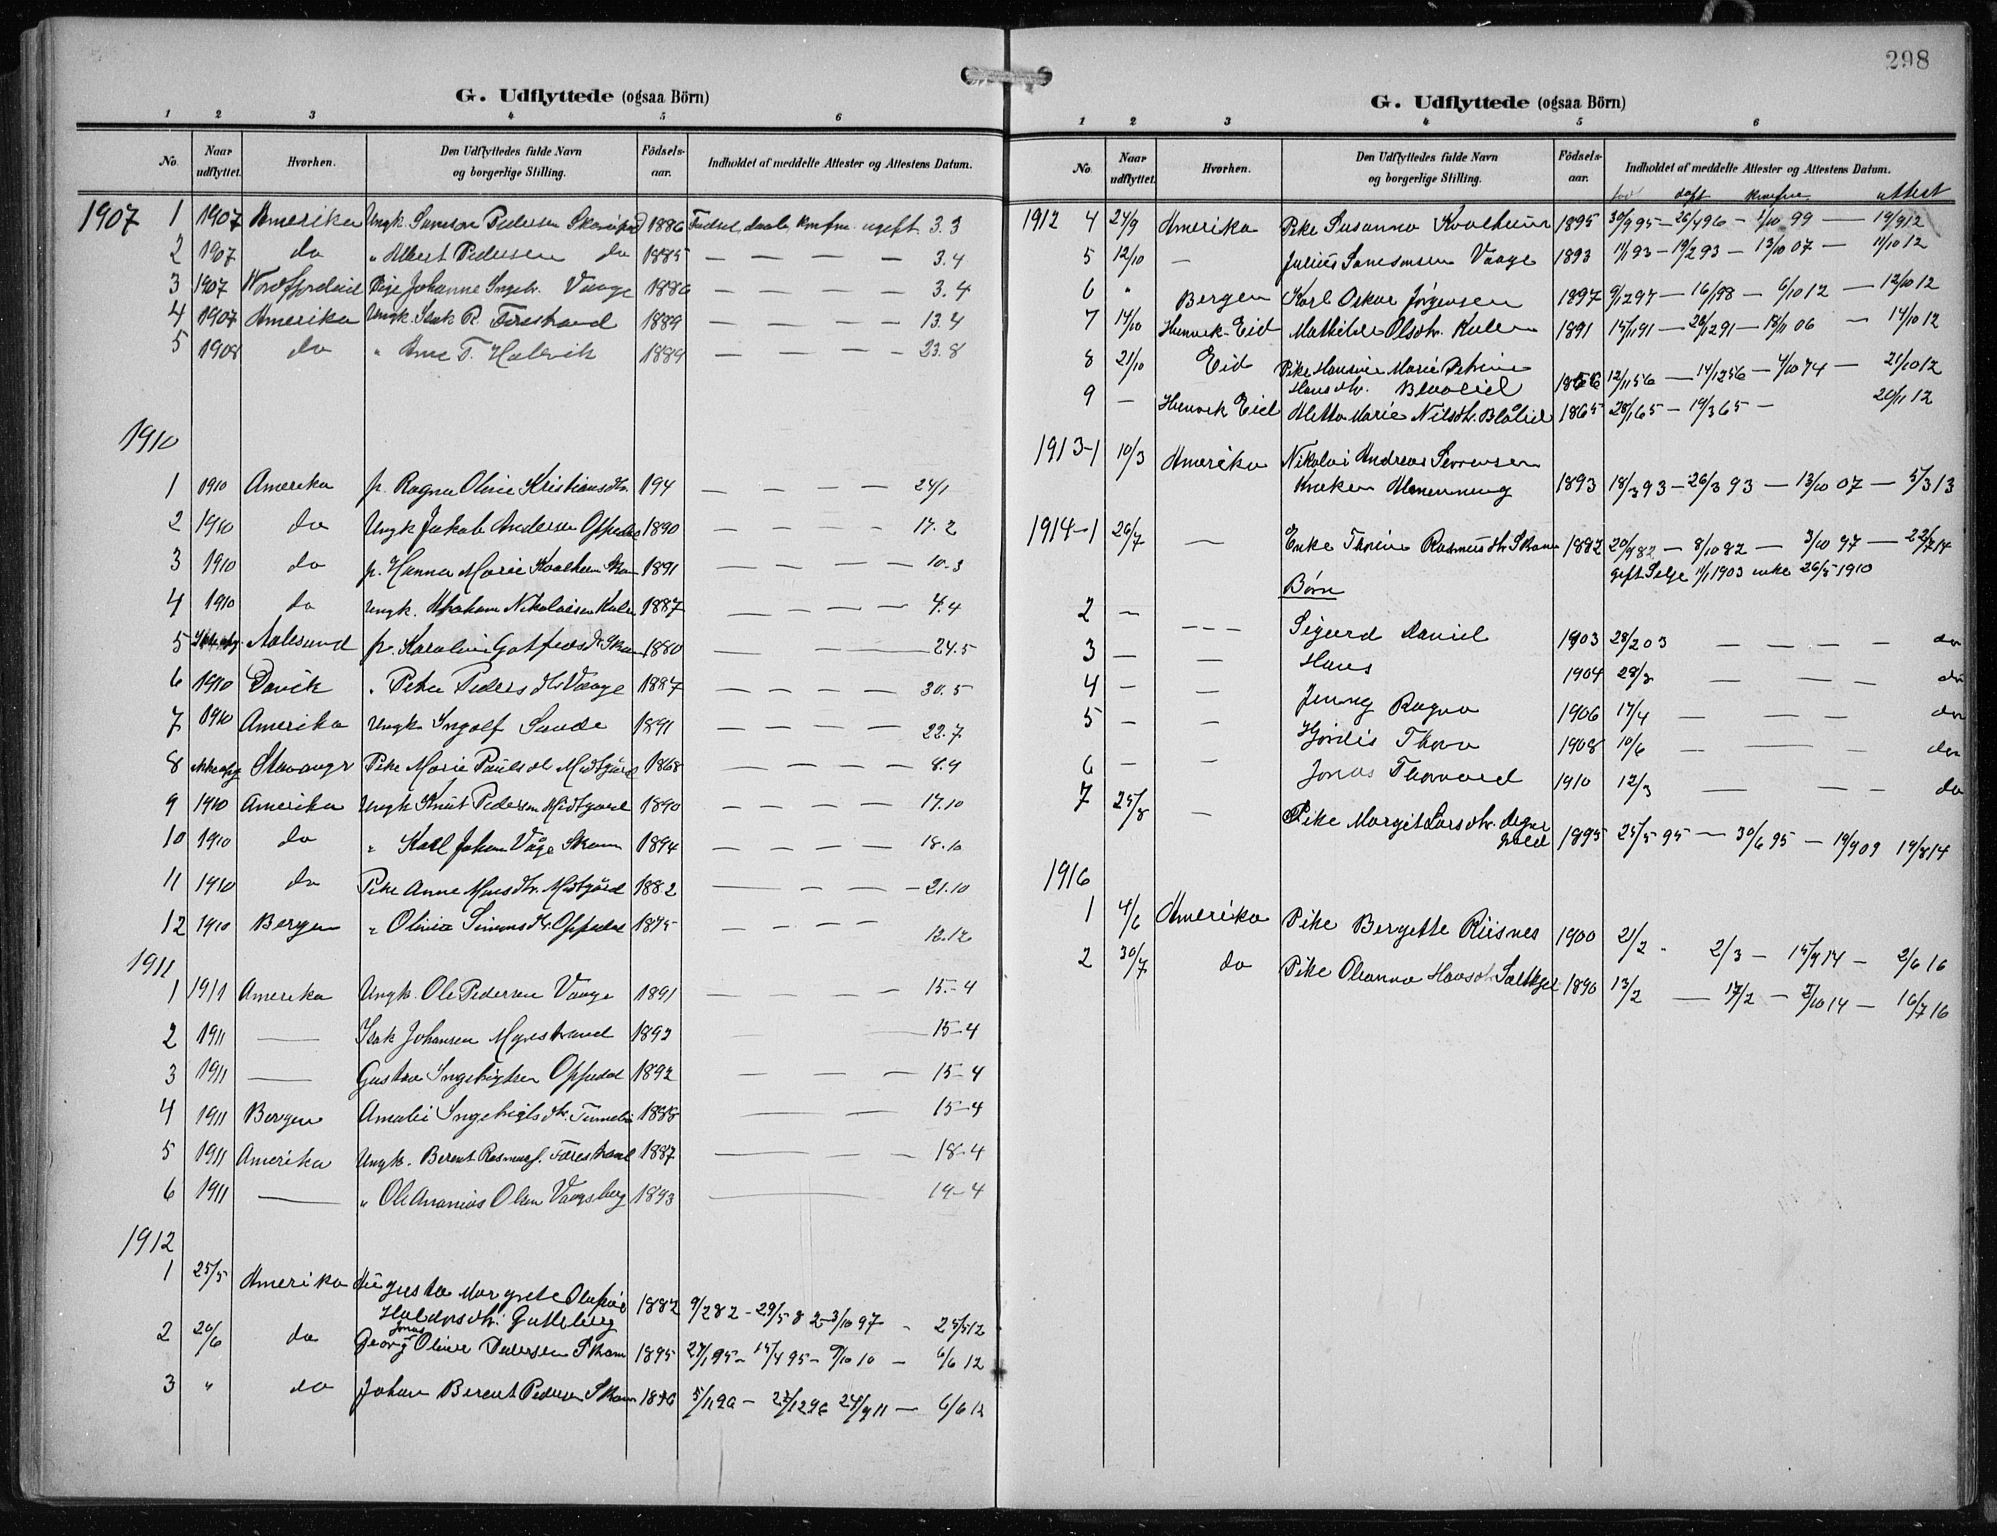 298
G. Udflyttede (ogsaa Börn)
1 2 3 4 5 6
No. Naar udflyttet. Hvorhen. Den Udflyttedes fulde Navn og borgerlige Stilling. Födsels-aar. Indholdet af meddelte Attester og Attestens Datum.
1907 1 1907 Amerika Ungk. Samson Pedersen 1886 Födsel, daab, konfm. ugift 3.3
2 1907 do " Albert Pedersen do 1885 — — — — 3.4
3 1907 Nordfjordeid Pige Johanne Ingebr. Vaage 1886 — — — — 3.4
4 1907 Amerika Ungk. Isak R. Förestrand 1889 — — — — 13.4
5 1908 do " Arne T. Halsvik 1889 — — — — 23.8
1910
1 1910 Amerika p. Ragna Oline Kristiansdtr. 194 — — — — 24/1
2 1910 do Ungk. Jakob Andersen Oppedal 1890 — — — — 17.2
3 1910 do p. Hanna Marie Kvalheim 1891 — — — — 10.3
4 1910 do Ungk. Abraham Nikolaisen 1887 — — — — 4.4
5 Aalesund p. Karoline 1880 — — — 24.5
6 1910 Davik " Petra Pedersdtr Vaage 1887 — — — — 30.5
7 1910 Amerika Ungk. Ingolf Sunde 1891 — — — — 22.7
8 Stavanger Pike Marie Paulsdtr Midtgård 1868 — — — — 8.9
9 1910 Amerika Ungk Knut Pedersen Midtgaard 1890 — — — — 17.10
10 1910 do " Karl Johan Våge Skram 1894 — — — — 18.10
11 1910 do Pike Anne Monsdtr. Midtgård 1882 — — — — 21.10
12 1910 Bergen " Olivia Simonsdtr. Oppedal 1875 — — — — 12.12
1911
1 1911 Amerika Ungk. Ole Pedersen Vaage 1891 — — — — 15-4
2 1911 — Isak Johansen Myrestrand 1892 — — 15-4
3 1911 — Gustav Ingebrigtsen Oppedal 1892 — — — 15-4
4 1911 Bergen Amalie Ingebrigtsdtr. 1888 — — 15-4
5 1911 Amerika Ungk. Berent Rasmuss. Förestrand 1887 — — — 18-4
6 1911 — " Ole Ananias Olsen Vaagsberg 1893 — — 19-4
1912
1 25/5 Amerika Augusta Margrete
Haldorsdtr. Gulleberg 1882 9/2 82 - 29/5 82 - 3/10 97 - 25/5 12
2 20/6 do Georg Jonas Oliver Pedersen Skram 1895 27/1 95 - 15/4 95 - 9/10 10 - 6/6 12
3 " do Johan Berent Pedersen Skram 1896 5/11 96 — 27/12 96 24/9 11 — 6/6 12
G. Udflyttede (ogsaa Börn)
1 2 3 4 5 6
No. Naar udflyttet. Hvorhen. Den Udflyttedes fulde Navn og borgerlige Stilling. Födsels-aar. Indholdet af meddelte Attester og Attestens Datum.
född döpt konfirm attest
1912 4 24/9 Amerika Pike Susanna Kvalheim 1895 30/9 95 - 26/4 96 - 1/10 99 — 19/9 12
5 12/10 — Julius Samsonsen Vaage 1893 11/1 93 - 19/2 93 - 13/10 07 — 11/10 12
6 " Bergen Karl Oskar Jørgensen 1897 9/12 97 — 16/1 98 — 6/10 12 — 12/10 12
7 14/10 Eid Mathilde Olsdtr. 1891 15/11 91 — 26/12 91 — 18/11 06 — 14/10 12
8 21/10 Eid Pike Hansine Marie Petrine
Hansdtr. Blaalid 1856 12/11 56 — 14/12 56 — 4/10 74 — 21/10 12
9 — Eid Mette Marie Nilsdtr. Blålid 1865 28/1 65 — 19/3 65 — 20/11 12
1913-1 10/3 Amerika Nikolai Andreas Sörensen
1893 18/3 93 — 26/3 93 — 13/10 07 — 5/3 13
1914-1 26/7 — Enke Thrine Rasmusdtr. Skram 1882 20/9 82 — 8/10 82 — 3/10 97 — 22/7 14
gift Selje 11/1 1903 enke 26/5 1910
Børn
2 — — — — Sigurd Daniel 1903 28/2 03 — — — — do
3 — — Hans 1904 28/3 — — — do
4 — — Jenny Ragna 1906 17/4 — — — — do
5 — — Hjørdis Thora 1908 10/6 — — — — do
6 — — Jonas Thorvard 1910 12/3 — — — do
7 25/8 — Pike Margit Larsdtr. 1895 25/5 95 — 30/6 95 — 19/9 09 19/8 14
1916
1 4/6 Amerika Pike Bergette Riisnes 1900 21/2 - 2/3 — 15/9 14 — 2/6 16
2 30/7 do Pike Oleanna Hansdtr. 1890 13/2 — 17/2 — 2/10 14 — 16/7 16